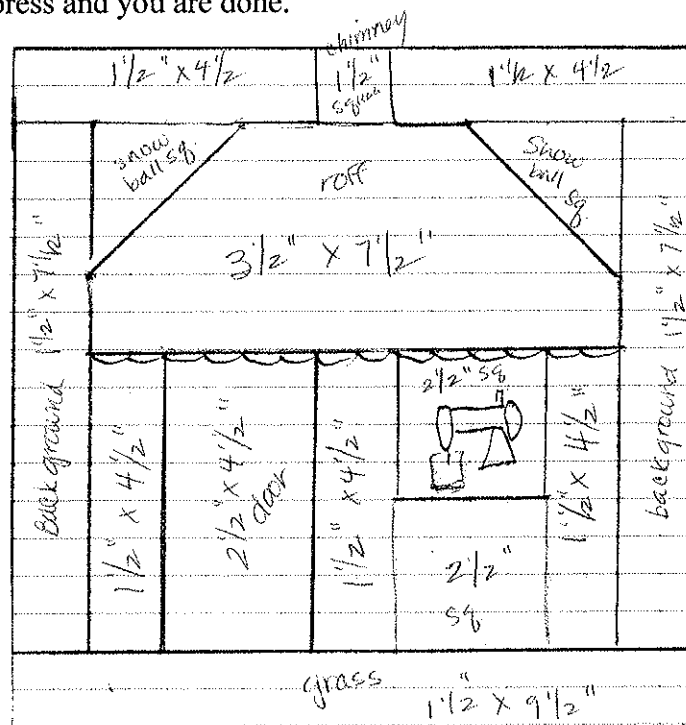 press and you are done.
chimney
1 1/2" x 4 1/2
1 1/2"
square
1 1/2 x 4 1/2
snow
ball sq.
Snow
ball
sq.
roff
3 1/2" x 7 1/2"
Background 1 1/2" x 7 1/2"
background 1 1/2" x 7 1/2"
1 1/2" x 4 1/2"
2 1/2" x 4 1/2"
door
1 1/2" x 4 1/2"
2 1/2" sq
2 1/2"
sq
1 1/2" x 4 1/2"
grass
1 1/2" x 9 1/2"